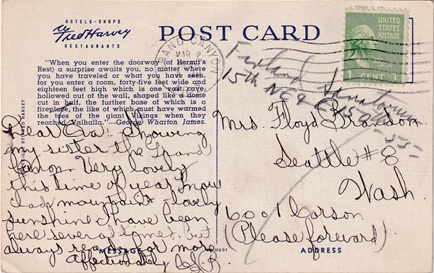 HOTELS - SHOPS
Fred Harvey
RESTAURANTS
POST CARD
"When you enter the doorway (of Hermit's
Rest) a surprise awaits you, no matter where
you have traveled or what you have seen,
for you enter a room, forty-five feet wide and
eighteen feet high which is one vast cave,
hollowed out of the wall, shaped like a dome
cut in half, the further base of which is a
fireplace, the like of which must have warmed
the toes of the giant Vikings when they
reached Valhalla." —George Wharton James.
UNITED STATES
POSTAGE
1 CENT 1
GRAND CANYON
MAR
Dear Eva: Showing
my sister the
Canon. Very lovely
this time of year. Snow
clad mountains - lovely
sunshine. I have been
here several times, but
always ready for more
Affectionately
MESSAGE
15th N.E. 9
Mrs. Floyd
Seattle #8
Wash.
6001 Carson
(Please forward)
ADDRESS